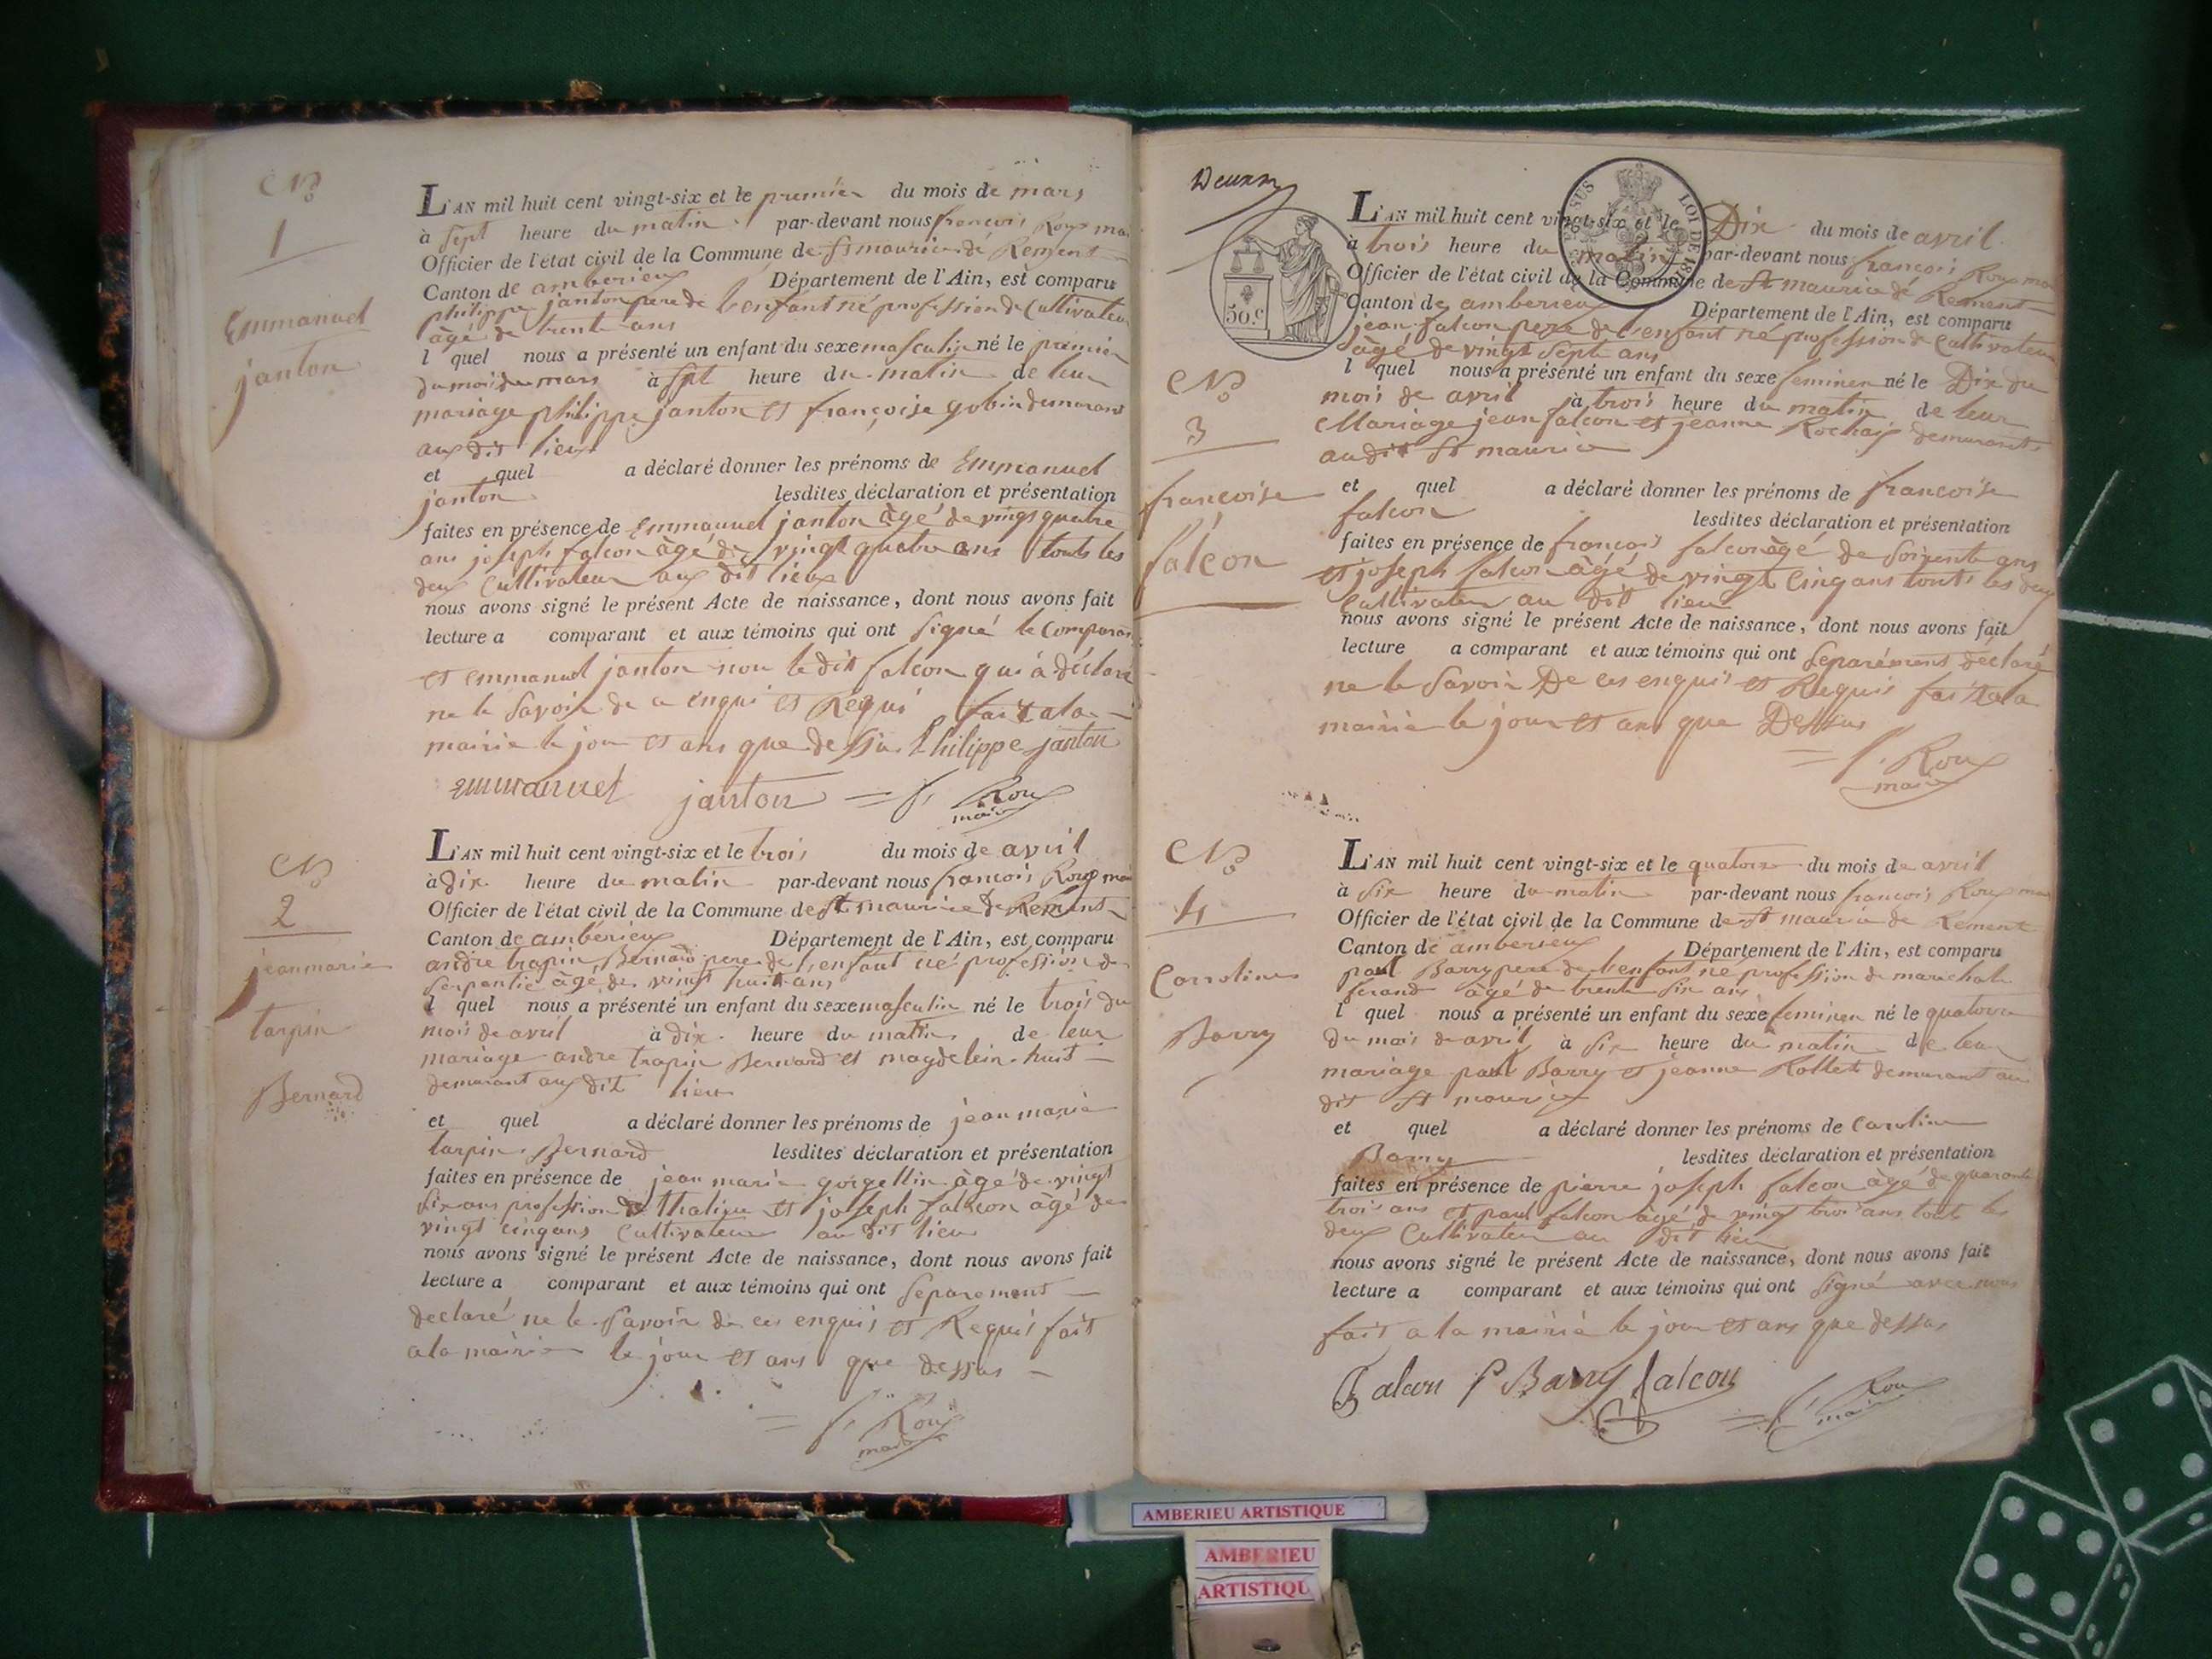 No
1
Emmanuel
janton
L'AN mil huit cent vingt-six et le premier du mois de mars
à sept heure du matin par-devant nous françois Roux
Officier de l'état civil de la Commune de St maurice de Rement
Canton de amberieux Département de l'Ain, est comparu
philippe janton pere de l'enfant né profession de Cultivateur
âgé de trente ans
l quel nous a présenté un enfant du sexe masculin né le premier
du mois de mars à sept heure du matin de leur
mariage philippe janton et françoise gobin demurant
aux dit lieux
et quel a déclaré donner les prénoms de Emmanuel
janton lesdites déclaration et présentation
faites en présence de Emmanuel janton âgé de vingt quatre
ans joseph falcon âgé de vingt quatre ans touts les
deux Cultivateur aux dit lieux
nous avons signé le présent Acte de naissance, dont nous avons fait
lecture a comparant et aux témoins qui ont signé le Comparant
et emmanuel janton non le dit falcon qui à déclaré
ne le savoir de ce enqui et Réqui fait ala
mairie le jour et ans que dessus Philippe janton
emmanuel janton = f. Roux
maire
No
2
jeanmarie
tarpin
Bernard
L'AN mil huit cent vingt-six et le trois du mois de avril
à Dix heure du matin par-devant nous francois Roux
Officier de l'état civil de la Commune de St maurice de Rement
Canton de amberieux Département de l'Ain, est comparu
andre trapin Bernard pere de l'enfant né profession de
âgé de vingt huit ans
l quel nous a présenté un enfant du sexe masculin né le trois du
mois de avril à dix heure du matin de leur
mariage andre trapin Bernard et magdelein huit
demurant aux dit lieu
et quel a déclaré donner les prénoms de jean marie
tarpin Bernard lesdites déclaration et présentation
faites en présence de jean marie gorgellin âgé de vingt
six ans profession de et joseph falcon âgé de
vingt cinq ans Cultivateur au dit lieu
nous avons signé le présent Acte de naissance, dont nous avons fait
lecture a comparant et aux témoins qui ont separement
declaré ne le savoir de ces enquis et Requis fait
ala mairie le jour et ans que dessus
= f. Roux
maire
50.c
LOI DE 181
No
3
françoise
falcon
L'AN mil huit cent vingt-six et le Dix du mois de avril
à trois heure du matin par-devant nous françois Roux
Officier de l'état civil de la Commune de St maurice de Rement
Canton de amberieux Département de l'Ain, est comparu
jean falcon pere de l'enfant né profession de Cultivateur
âgé de vingt sept ans
l quel nous a présenté un enfant du sexe feminen né le Dix du
mois de avril à trois heure du matin de leur
Mariage jean falcon et jeanne Rochaix demurants
au dit St maurice
et quel a déclaré donner les prénoms de francoise
falcon lesdites déclaration et présentation
faites en présence de françois falcon âgé de soixente ans
et joseph falcon âgé de vingt Cinq ans touts les deux
Cultivateur au dit lieu
nous avons signé le présent Acte de naissance, dont nous avons fait
lecture a comparant et aux témoins qui ont separément déclaré
ne le savoir De ces enquis et Requis fait ala
mairie le jour et ans que Dessus
= f. Roux
maire
No
4
Carroline
Barry
L'AN mil huit cent vingt-six et le quatorze du mois de avril
à six heure du matin par-devant nous françois Roux
Officier de l'état civil de la Commune de St maurice de Rement
Canton de amberieux Département de l'Ain, est comparu
paul Barry pere de l'enfant né profession de marichal
ferand âgé de trente six ans
l quel nous a présenté un enfant du sexe feminen né le quatorze
du mois de avril à six heure du matin de leur
mariage paul Barry et jeanne Rollet demurant au
dit St maurice
et quel a déclaré donner les prénoms de Caroline
Barry lesdites déclaration et présentation
faites en présence de pierre joseph falcon âgé de quarante
trois ans et paul falcon âgé de vingt trois ans touts les
deux Cultivateur au dit lieu
nous avons signé le présent Acte de naissance, dont nous avons fait
lecture a comparant et aux témoins qui ont signé avec nous
fait a la mairie le jour et ans que dessus
falcon P Barry falcon = f. Roux
maire
AMBERIEU ARTISTIQUE
AMBERIEU
ARTISTIQU